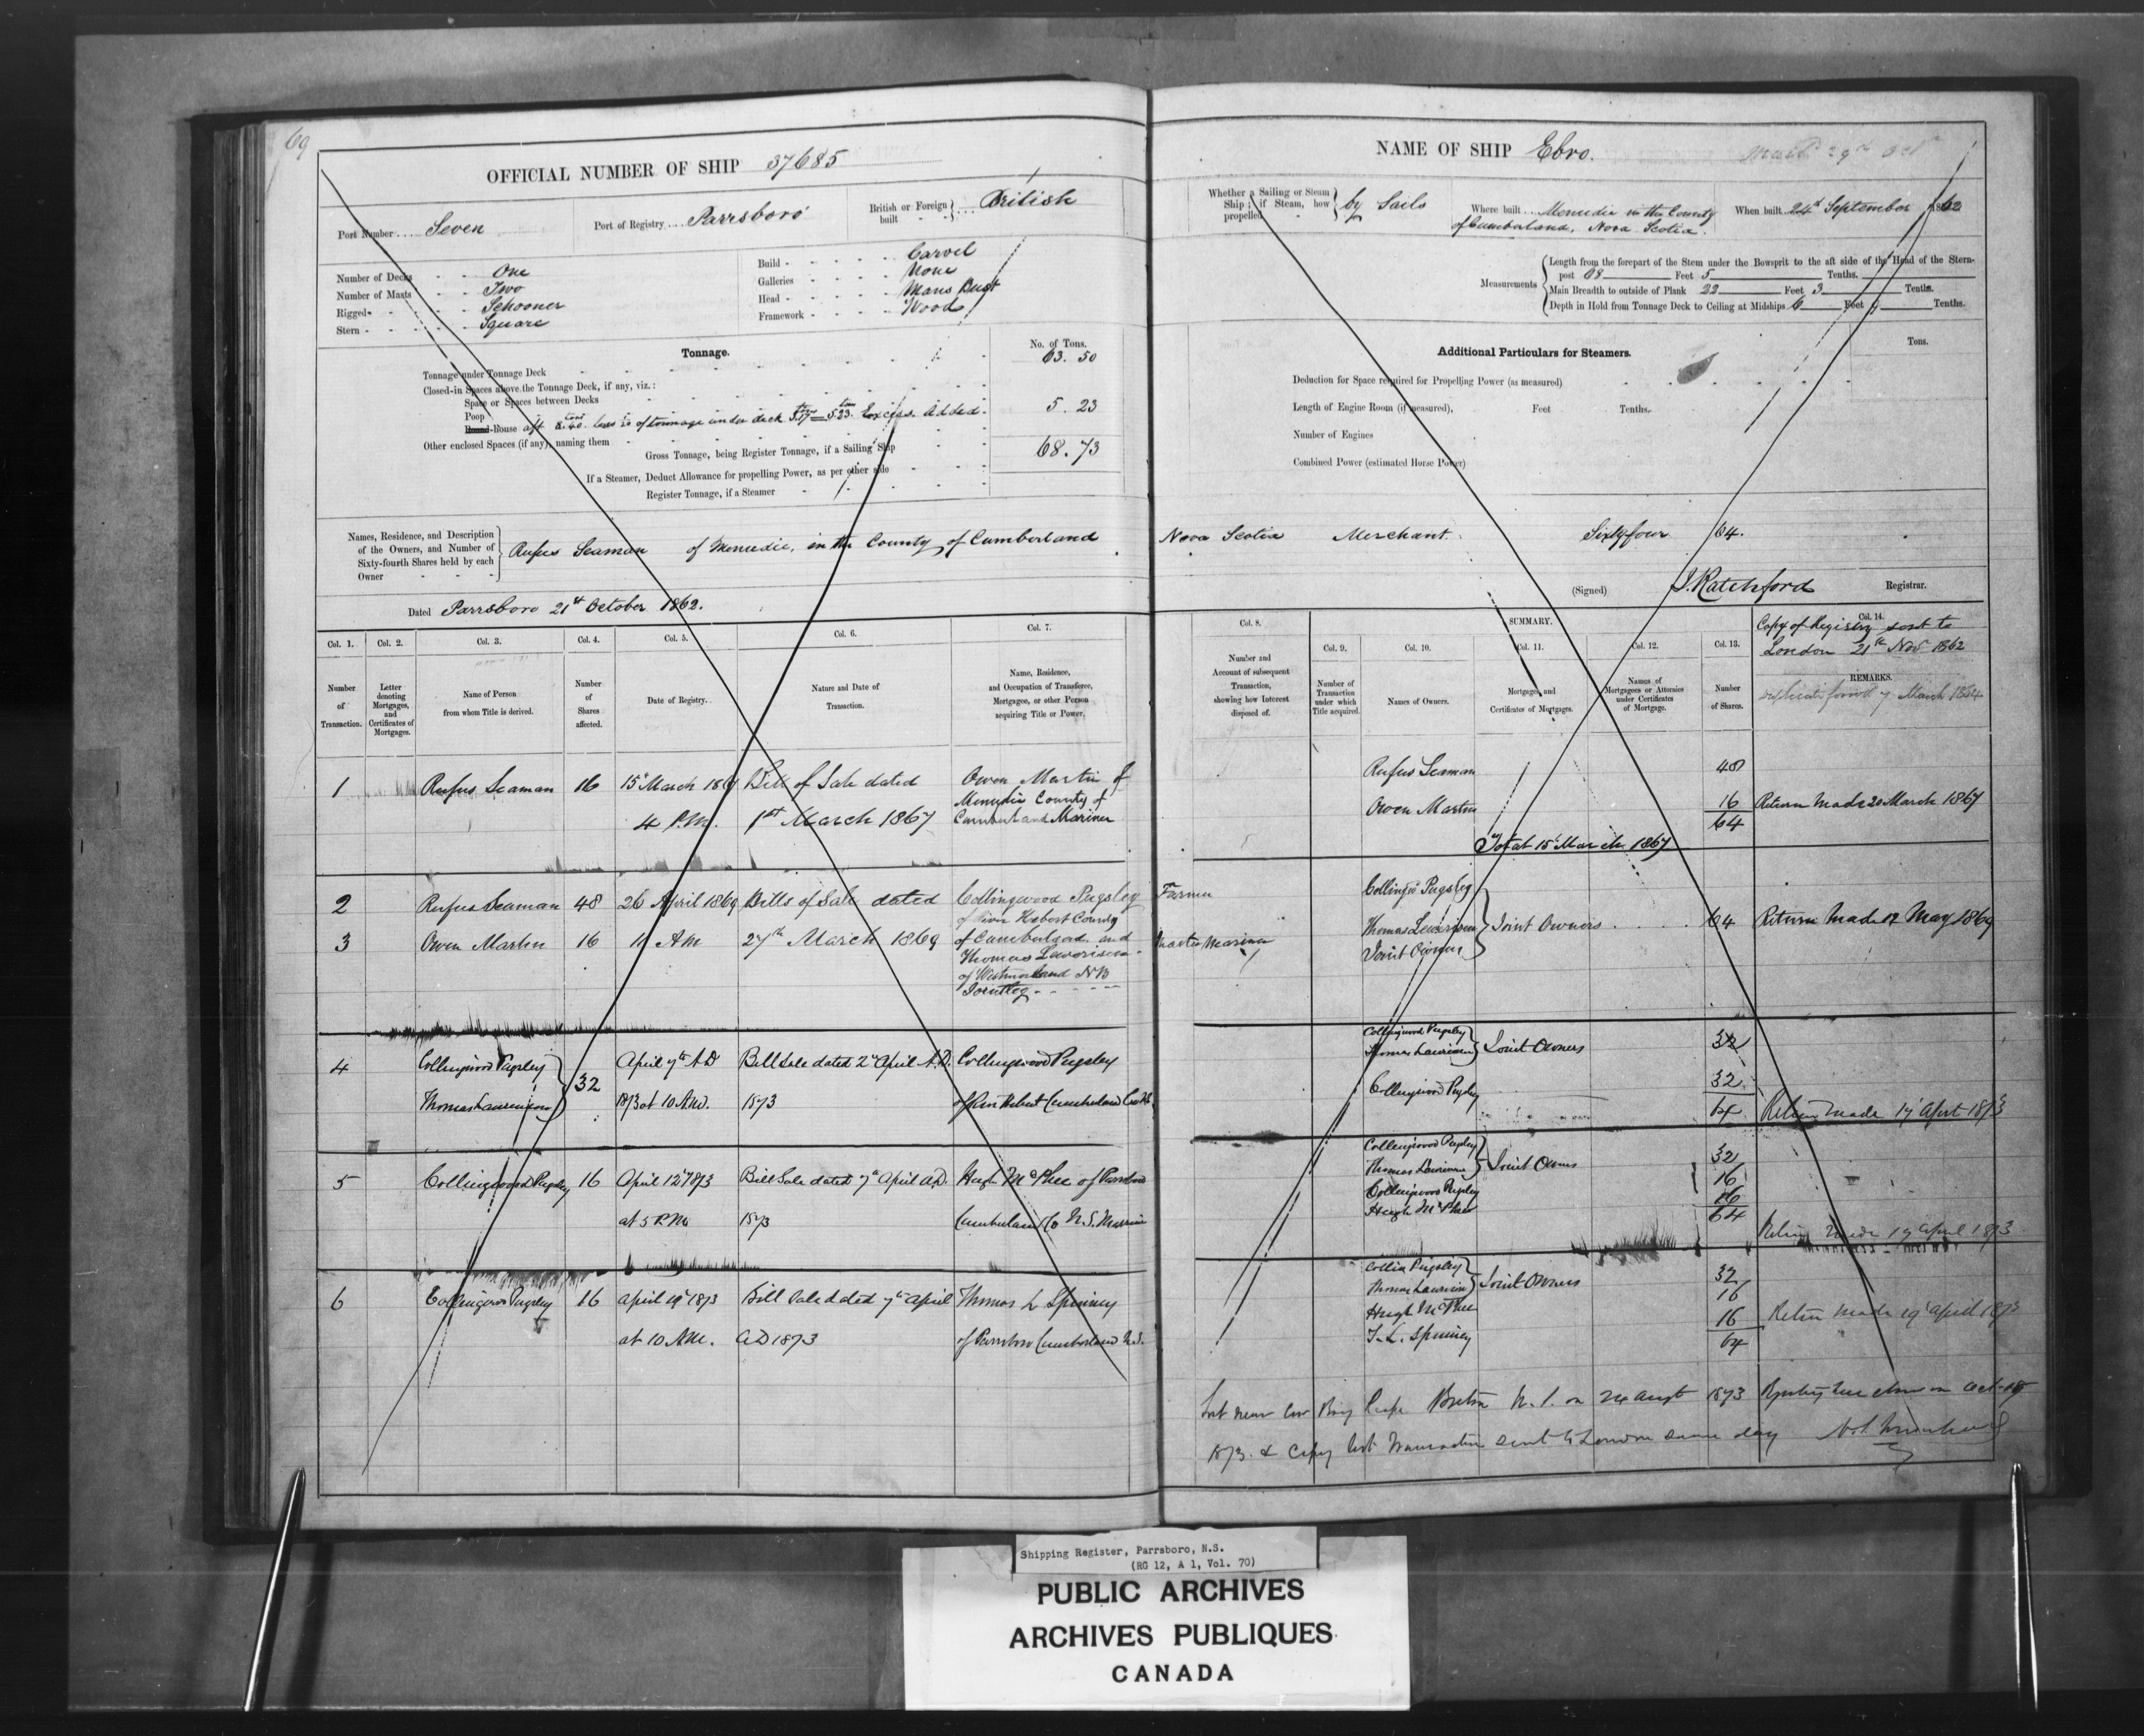 69
OFFICIAL NUMBER OF SHIP 37685
Port Number .... Seven
Port of Registry .... Parrsboro
British or Foreign built } ... British
Number of Decks - - One
Number of Masts - - Two
Rigged - - - Schooner
Stern - - - - Square
Build - - - - - Carvel
Galleries - - - - None
Head - - - - - Mans Bust
Framework - - - - Wood
Tonnage.
No. of Tons.
Tonnage under Tonnage Deck 63. 50
Closed-in Spaces above the Tonnage Deck, if any, viz.:
Space or Spaces between Decks
Poop
Round-House aft 8.40 less is of tonnage under deck 3.17 = 5.23 Excess Added. 5. 23
Other enclosed Spaces (if any), naming them
Gross Tonnage, being Register Tonnage, if a Sailing Ship 68. 73
If a Steamer, Deduct Allowance for propelling Power, as per other side
Register Tonnage, if a Steamer
Names, Residence, and Description of the Owners, and Number of Sixty-fourth Shares held by each Owner } Rufus Seaman of Menudie, in the County of Cumberland
Dated Parrsboro 21st October 1862.
Col. 1. Col. 2. Col. 3. Col. 4. Col. 5. Col. 6. Col. 7.
Number of Transaction.
Letter denoting Mortgages, and Certificates of Mortgages.
Name of Person from whom Title is derived.
Number of Shares affected.
Date of Registry.
Nature and Date of Transaction.
Name, Residence, and Occupation of Transferee, Mortgagee, or other Person acquiring Title or Power.
1 Rufus Seaman 16 15 March 1867 Bill of Sale dated Owen Martin of
4 P.M. 1st March 1867 Menudie County of
Cumberland Mariner
2 Rufus Seaman 48 26 April 1869 Bills of Sale dated Collingwood Pugsley
of River Hebert County
3 Owen Martin 16 11 AM 27th March 1869 of Cumberland and
Thomas Lewerison
of Westmorland NB
Jointly
4 Collingwood Pugsley } 32 April 7th AD Bill Sale dated 2d April A.D. Collingwood Pugsley
Thomas 1873 at 10 A.M. 1873
5 Collingwood Pugsley 16 April 12 1873 Bill Sale dated 7th April A.D. Hugh McPhee of Parrsboro
at 5 P.M. 1873 Cumberland Co N.S. Marrine
6 Collingwood Pugsley 16 April 19 1873 Bill Sale dated 7th April Thomas L Spinney
at 10 A.M. AD 1873 of Parrsboro Cumberland N.S.
NAME OF SHIP Ebro.
Whether a Sailing or Steam Ship; if Steam, how propelled } by Sails
Where built ... Menudie in the County of Cumberland, Nova Scotia.
When built 24d September 1862
Measurements
Length from the forepart of the Stem under the Bowsprit to the aft side of the Head of the Stern-
post 68 Feet 5 Tenths.
Main Breadth to outside of Plank 22 Feet 3 Tenths.
Depth in Hold from Tonnage Deck to Ceiling at Midships 6 Feet 9 Tenths.
Additional Particulars for Steamers.
Tons.
Deduction for Space required for Propelling Power (as measured)
Length of Engine Room (if measured), Feet Tenths.
Number of Engines
Combined Power (estimated Horse Power)
Nova Scotia Merchant Sixtyfour 64.
(Signed) J. Ratchford Registrar.
SUMMARY.
Col. 8. Col. 9. Col. 10. Col. 11. Col. 12. Col. 13. Col. 14.
Copy of Registry sent to
London 21st Nov 1862
Number and Account of subsequent Transaction, showing how Interest disposed of.
Number of Transaction under which Title acquired.
Names of Owners.
Mortgages and Certificates of Mortgages.
Names of Mortgagees or Attornies under Certificates of Mortgage.
Number of Shares.
REMARKS.
7 March 1864
Rufus Seaman 48
Owen Martin 16 Return Made 20 March 1867
64
Total 15 March 1867
Farmer
Master Mariner
Collingd Pugsley
Thomas Lewerison } Joint Owners 64 Return Made 12 May 1869
Joint Owners
Collingwood Pugsley
Thomas } Joint Owners 32
Collingwood Pugsley 32
64 Return Made 17 April 1873
Collingwood Pugsley
Thomas } Joint Owners 32
Collingwood Pugsley 16
Hugh McPhee 16
64
Return Made 17 April 1873
Collin Pugsley
Thomas } Joint Owners 32
Hugh McPhee 16
T. L. Spinney 16 Return Made 19 April 1873
64
Lost near Cow Bay Cape Breton N.S. on 24 Augt 1873
1873. & Copy last Transaction sent to London same day
Shipping Register, Parrsboro, N.S.
(RG 12, A 1, Vol. 70)
PUBLIC ARCHIVES
ARCHIVES PUBLIQUES
CANADA